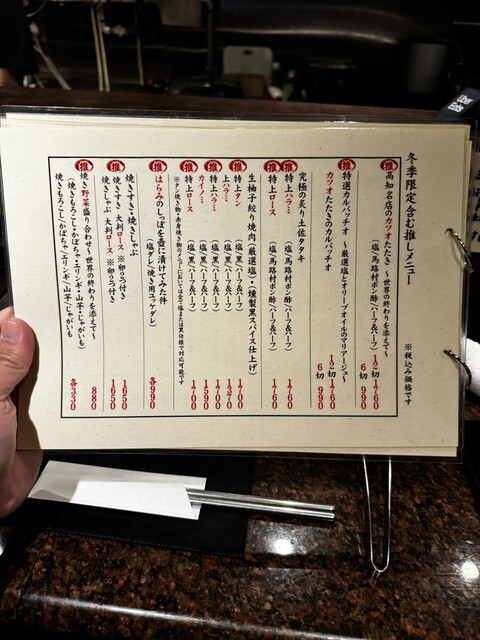 冬季限定含む推しメニュー ※税込み価格です
推 高知名店のカツオたたき 〜世界の終わりを添えて〜
(塩/馬路村ポン酢/ハーフ&ハーフ) 12切 1760
6切 990
推 特選カルパッチオ 〜厳選塩とオリーブオイルのマリアージュ〜
カツオたたきのカルパッチオ 12切 1760
6切 990
究極の炙り土佐タタキ
推 上ハラミ (塩/馬路村ポン酢/ハーフ&ハーフ) 1760
推 特上ロース (塩/馬路村ポン酢/ハーフ&ハーフ) 1760
生柚子絞り焼肉(厳選塩)・燻製黒スパイス仕上げ)
推 特上タン (塩/黒/ハーフ&ハーフ) 1700
推 上ハラミ (塩/黒/ハーフ&ハーフ) 1270
推 特上ハラミ (塩/黒/ハーフ&ハーフ) 1700
推 カイノミ (塩/黒/ハーフ&ハーフ) 1590
推 特上ロース (塩/黒/ハーフ&ハーフ) 1700
推 はらみのしっぽを壺に漬けてみた件
(塩ダレ/焼き用ユッケダレ) 各990
焼きすき・焼きしゃぶ
推 焼きすき 大判ロース ※卵2つ付き 1650
推 焼きしゃぶ 大判ロース ※卵2つ付き 1650
推 焼き野菜盛り合わせ 〜世界の終わりを添えて〜
(焼きもろこし・かぼちゃ・エリンギ・山芋・じゃがいも) 880
焼きもろこし/かぼちゃ/エリンギ/山芋/じゃがいも 各330